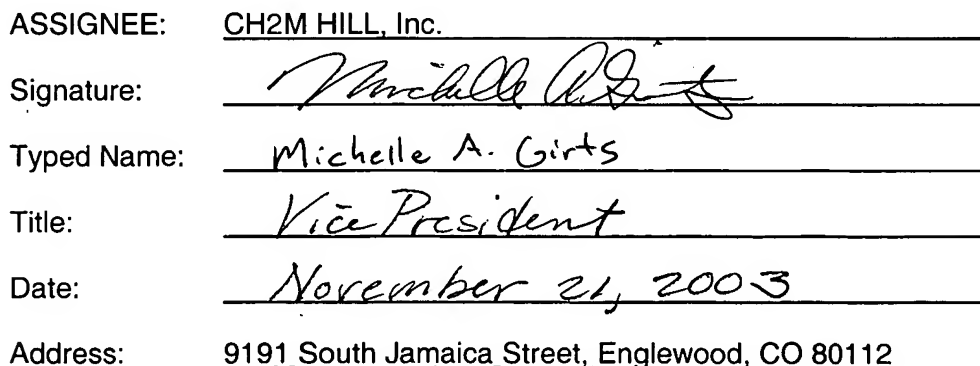 ASSIGNEE: CH2M HILL, Inc.
Signature: Michelle A. Girts
Typed Name: Michelle A. Girts
Title: Vice President
Date: November 21, 2003
Address: 9191 South Jamaica Street, Englewood, CO 80112